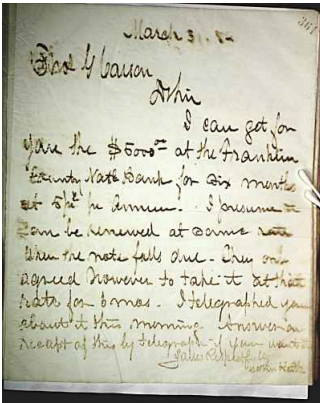 361
March 31. 82
Thos G Carson
D Sir
I can get for
you the $5000 00 at the Franklin
County Natl Bank for Six months
at 5 pr ct pr annum. I presume it
can be renewed at same rate
when the note falls due. They only
agreed however to take it at that
rate for 6 mos. I telegraphed you
about it this morning Answer on
receipt of this by telegraph if you want it
Yours Respectfully